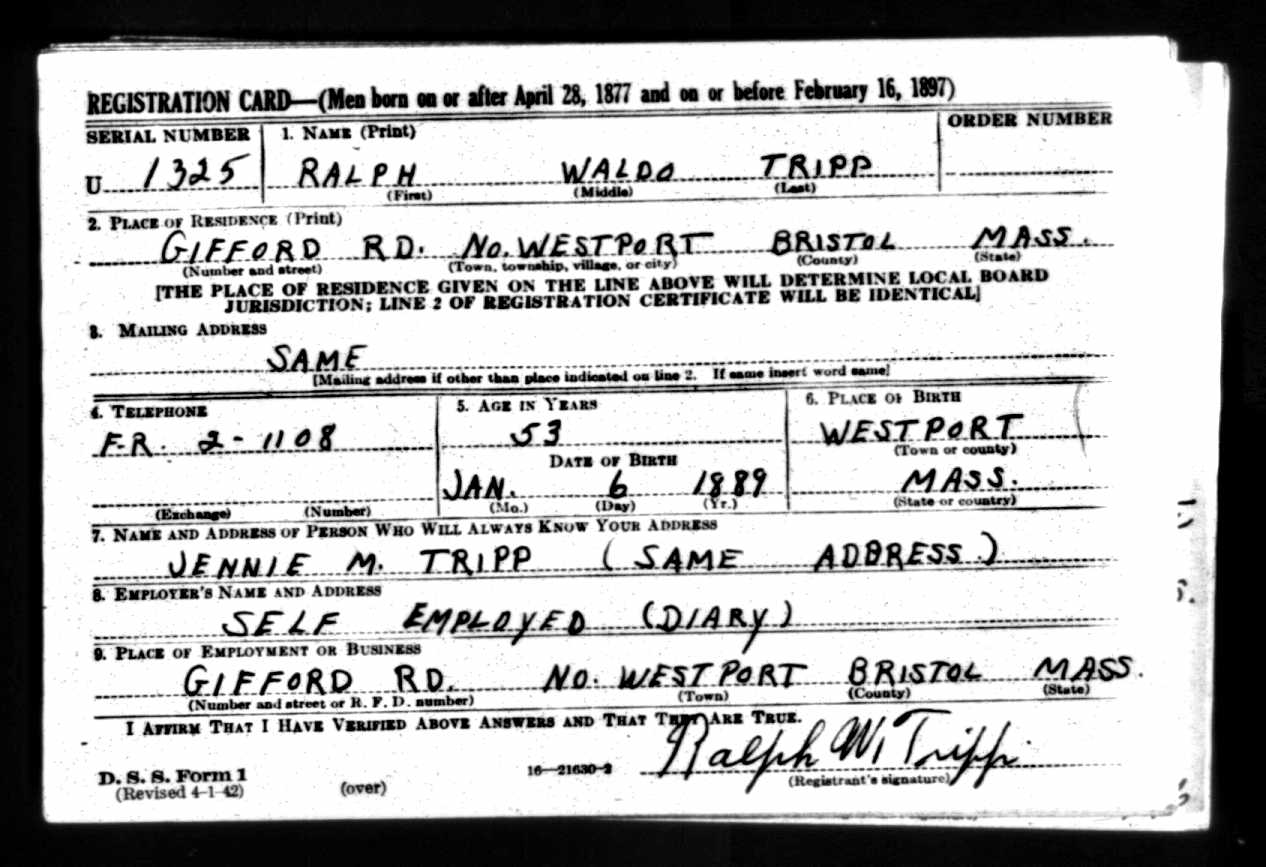 REGISTRATION CARD—(Men born on or after April 28, 1877 and on or before February 16, 1897)
SERIAL NUMBER 1. NAME (Print) ORDER NUMBER
U 1325 RALPH WALDO TRIPP
(First) (Middle) (Last)
2. PLACE OF RESIDENCE (Print)
GIFFORD RD. NO. WESTPORT BRISTOL MASS.
(Number and street) (Town, township, village, or city) (County) (State)
[THE PLACE OF RESIDENCE GIVEN ON THE LINE ABOVE WILL DETERMINE LOCAL BOARD
JURISDICTION; LINE 2 OF REGISTRATION CERTIFICATE WILL BE IDENTICAL]
3. MAILING ADDRESS
SAME
[Mailing address if other than place indicated on line 2. If same insert word same]
4. TELEPHONE 5. AGE IN YEARS 6. PLACE OF BIRTH
F.R. 2-1108 53 WESTPORT
(Town or county)
DATE OF BIRTH
JAN. 6 1889 MASS.
(Exchange) (Number) (Mo.) (Day) (Yr.) (State or country)
7. NAME AND ADDRESS OF PERSON WHO WILL ALWAYS KNOW YOUR ADDRESS
JENNIE M. TRIPP (SAME ADDRESS)
8. EMPLOYER'S NAME AND ADDRESS
SELF EMPLOYED (DIARY)
9. PLACE OF EMPLOYMENT OR BUSINESS
GIFFORD RD. NO. WESTPORT BRISTOL MASS.
(Number and street or R. F. D. number) (Town) (County) (State)
I AFFIRM THAT I HAVE VERIFIED ABOVE ANSWERS AND THAT THEY ARE TRUE.
Ralph W. Tripp
D. S. S. Form 1 16—21630-2 (Registrant's signature)
(Revised 4-1-42) (over)